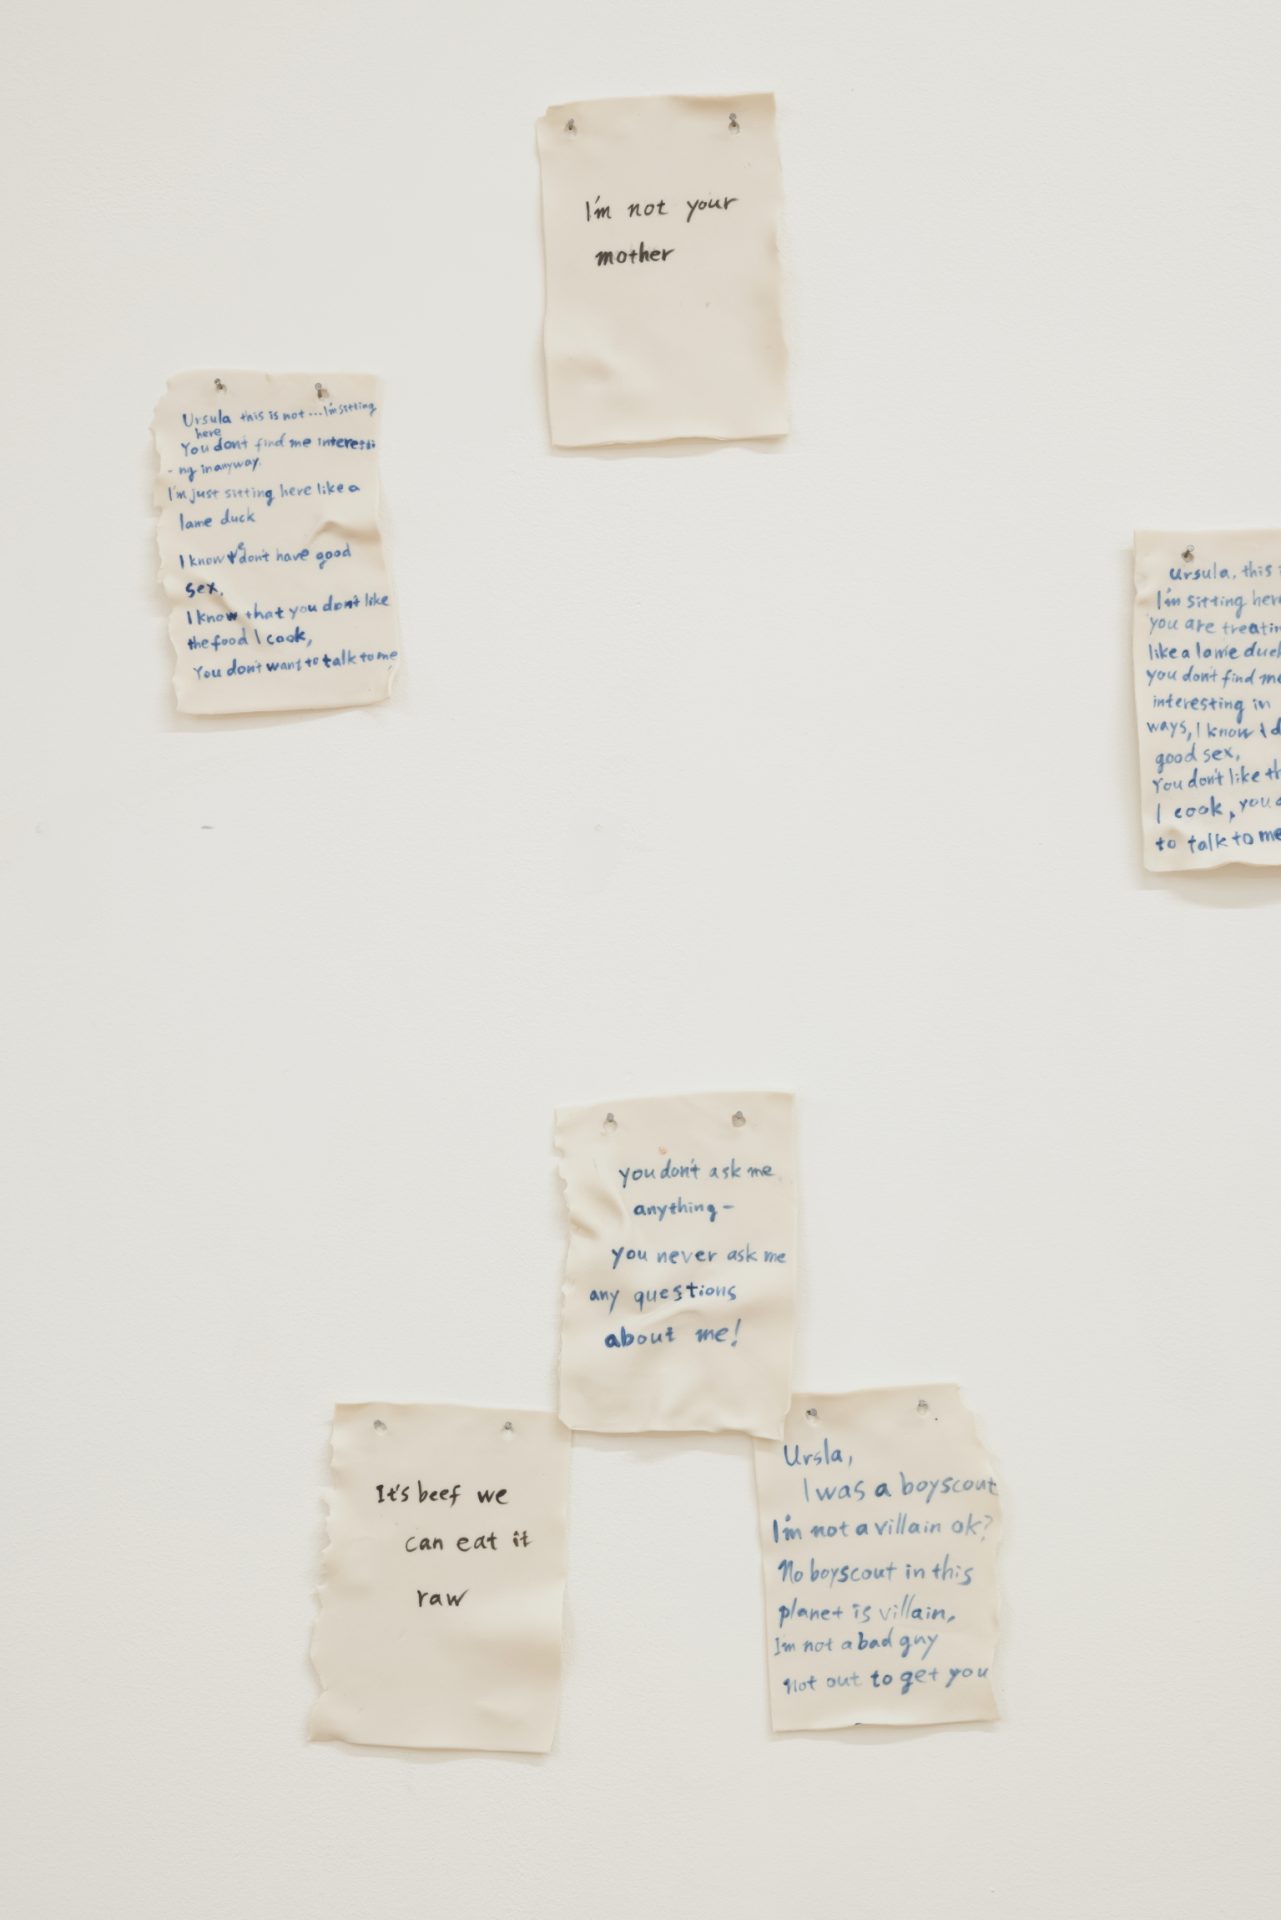 I'm not your
mother
Ursula this is not ... I'm sitting
here
You don't find me interesti
- ng in anyway.
I'm just sitting here like a
lame duck
I know we don't have good
sex,
I know that you don't like
the food I cook,
You don't want to talk to me
Ursula, this
I'm sitting here
you are treatin
like a lame duck
you don't find me
interesting in
ways, I know I d
good sex,
You don't like th
I cook, you d
to talk to me
you don't ask me
anything -
you never ask me
any questions
about me!
It's beef we
can eat it
raw
Ursla,
I was a boyscout
I'm not a villain ok?
No boyscout in this
planet is villain,
I'm not a bad guy
not out to get you